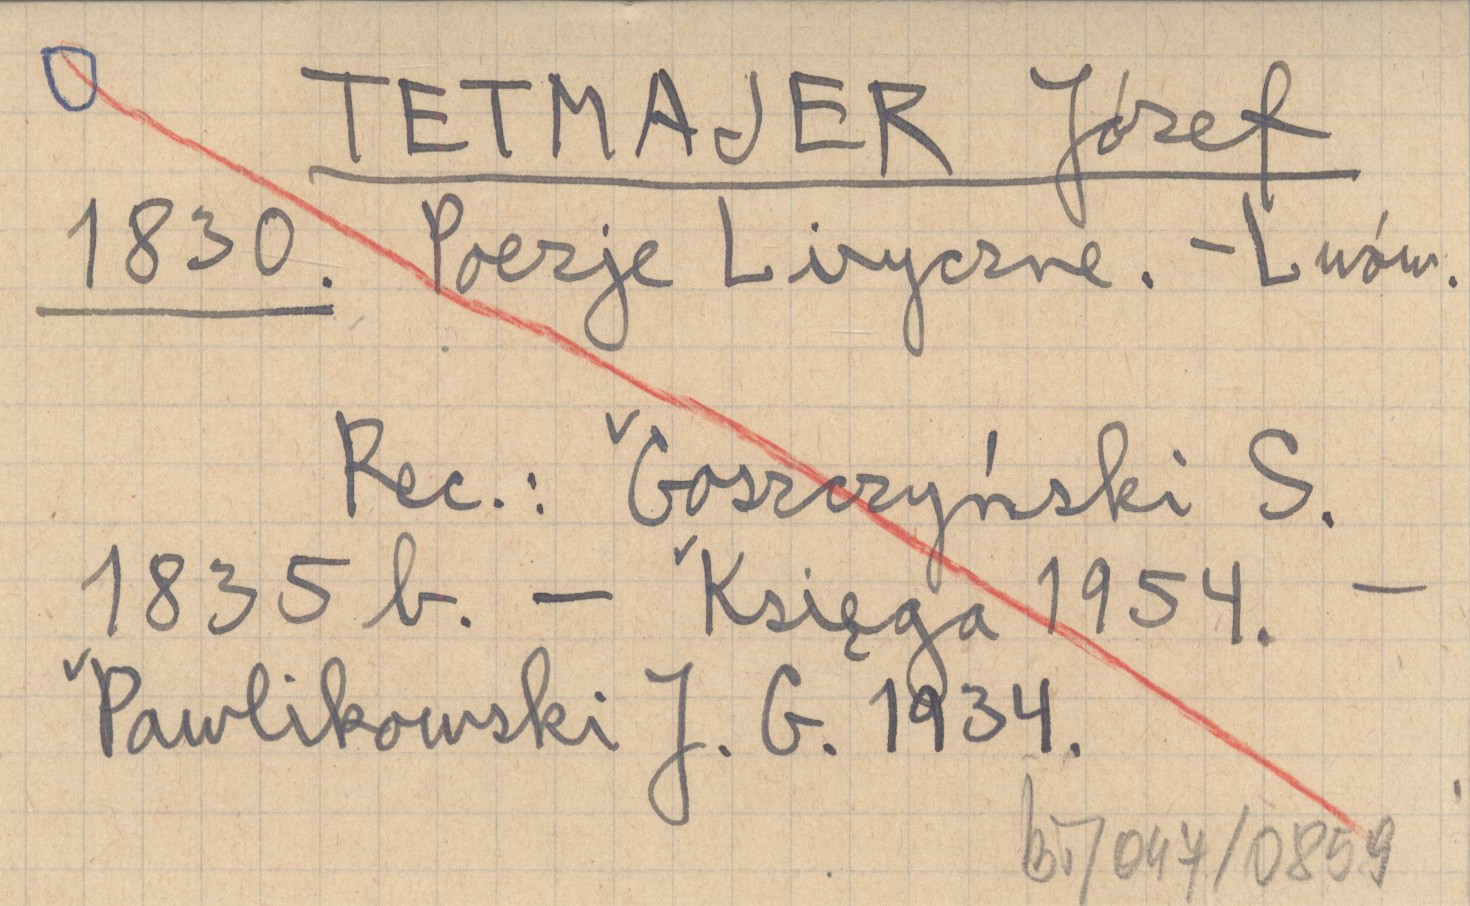 TETMAJER Józef
1830. Poezje Liryczne. - Lwów.
Rec.: ˇGoszczyński S.
1835 b. — ˇKsięga 1954. —
ˇPawlikowski J. G. 1934.
bT/047/0859